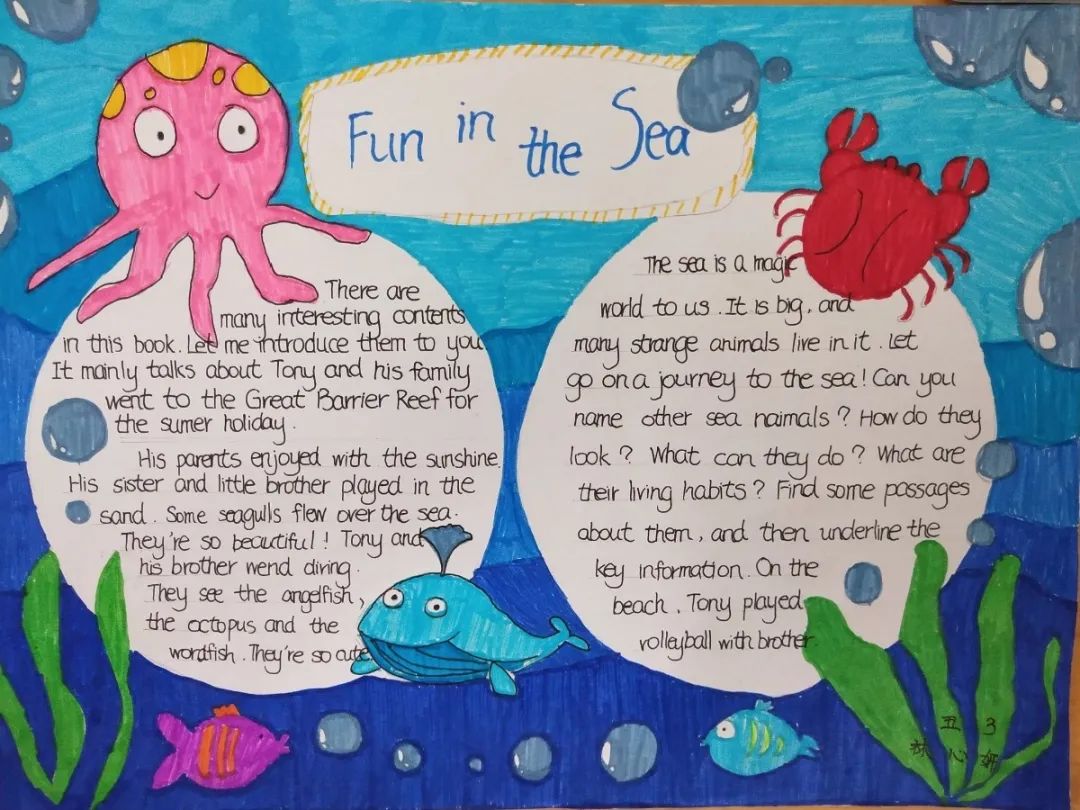 Fun in the Sea
There are
many interesting contents
in this book. Let me introduce them to you
It mainly talks about Tony and his family
went to the Great Barrier Reef for
the sumer holiday.
His parents enjoyed with the sunshine.
His sister and little brother played in the
sand. Some seagulls flew over the sea.
They're so beautiful! Tony and
his brother wend diring.
They see the angelfish,
the octopus and the
wordfish. They're so cute.
The sea is a magic
world to us. It is big, and
many strange animals live in it. Let
go on a journey to the sea! Can you
name other sea naimals? How do they
look? What can they do? What are
their living habits? Find some passages
about them, and then underline the
key information. On the
beach, Tony played
volleyball with brother.
五 3
心妍